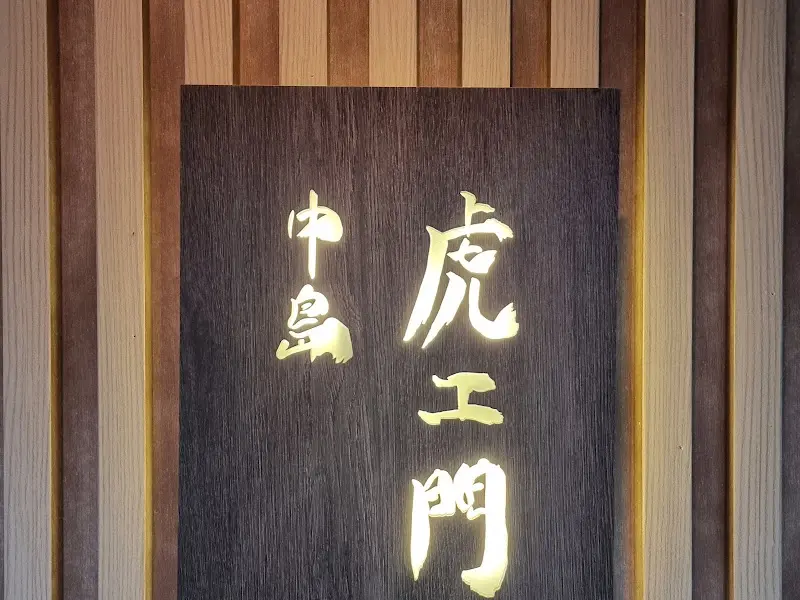 虎工門
中島